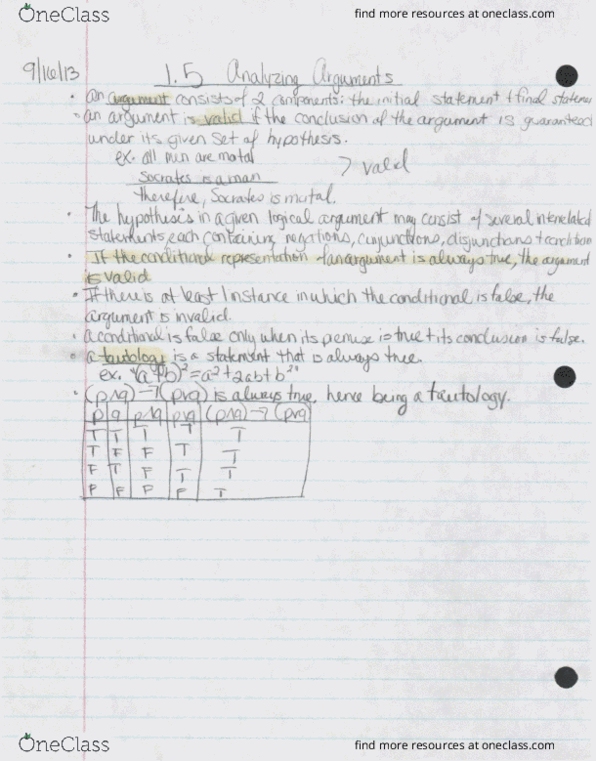 OneClass
find more resources at oneclass.com
9/16/13
1.5 Analyzing Arguments
• an argument consists of 2 components: the initial statement + final statemen
• an argument is valid if the conclusion of the argument is guaranteed
under its given set of hypothesis.
ex. all men are motal
> valid
Socrates is a man
therefore, Socrates is mutal.
• The hypothesis in a given logical argument may consist of several interrelated
statements, each containing negations, conjunctions, disjunctions + condition
• If the conditional representation of an argument is always true, the argument
is valid
• If there is at least 1 instance in which the conditional is false, the
argument is invalid.
• a conditional is false only when its premise is true + its conclusion is false.
• a tautology is a statement that is always true.
ex. "(a+b)² = a² + 2ab + b²"
• (p∧q) → (p∨q) is always true, hence being a tautology.
p q p∧q p∨q (p∧q) → (p∨q)
T T T T T
T F F T T
F T F T T
F F F F T
OneClass
find more resources at oneclass.com